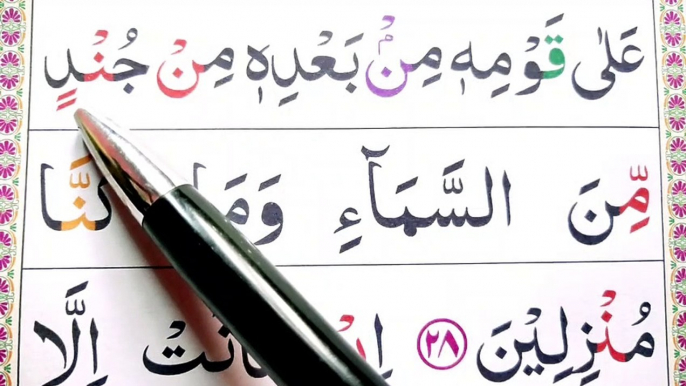 عَلٰى قَوْمِهٖ مِنْۢ بَعْدِهٖ مِنْ جُنْدٍ
مِّنَ السَّمَآءِ وَمَا كُنَّا
مُنْزِلِيْنَ ﴿۲۸﴾ اِنْ كَانَتْ اِلَّا